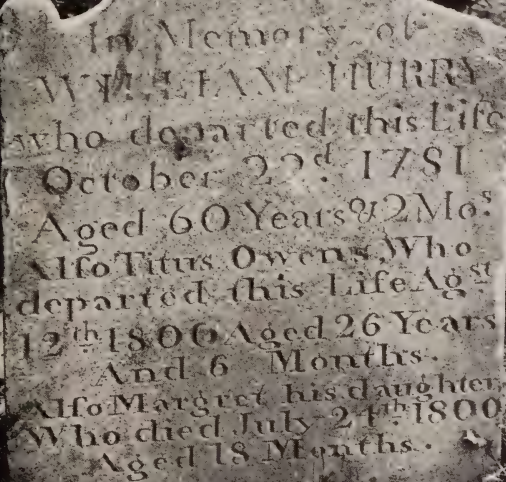 In Memory of
WILLIAM HURRY
who departed this Life
October 22d. 1781
Aged 60 Years & 2 Mos.
Also Titus Owens, Who
departed this Life Agst
12th 1800 Aged 26 Years
And 6 Months.
Also Margret his daughter,
Who died July 24th 1800
Aged 18 Months.